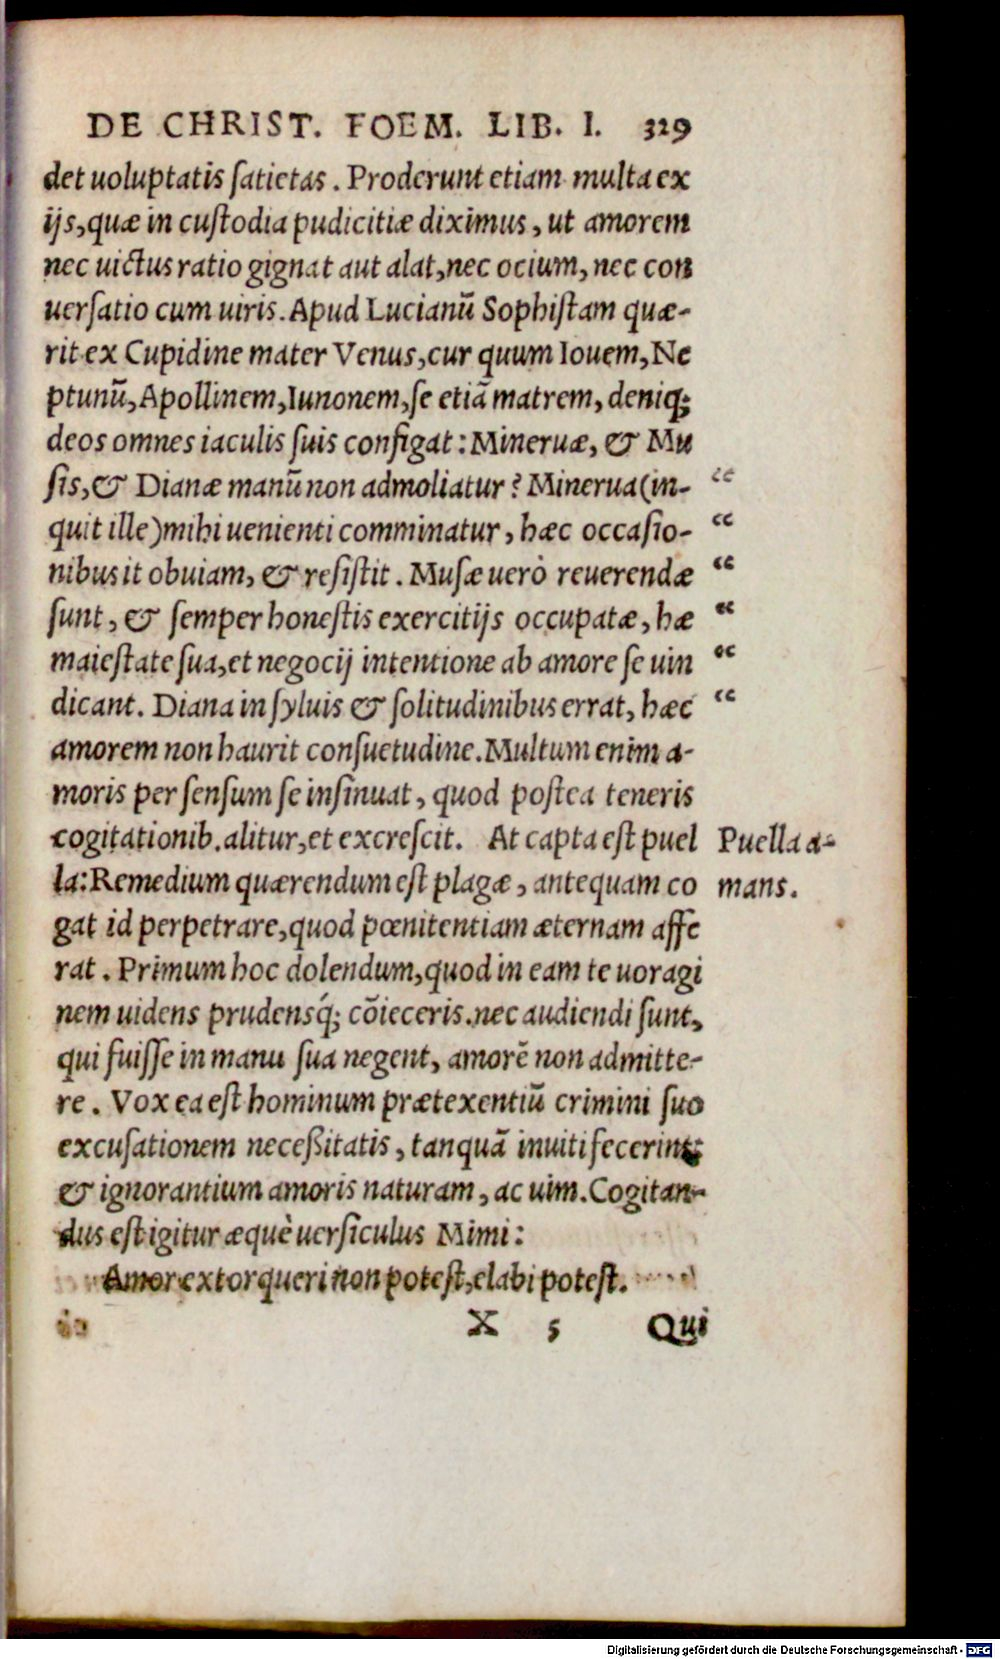 DE CHRIST. FOEM. LIB. I. 329
det uoluptatis ſatietas. Proderunt etiam multa ex
ijs, quæ in cuſtodia pudicitiæ diximus, ut amorem
nec uictus ratio gignat aut alat, nec ocium, nec con
uerſatio cum uiris. Apud Lucianū Sophiſtam quæ-
rit ex Cupidine mater Venus, cur quum Iouem, Ne
ptunū, Apollinem, Iunonem, ſe etiā matrem, deniq;
deos omnes iaculis ſuis configat: Mineruæ, & Mu
ſis, & Dianæ manū non admoliatur? Minerua (in- “
quit ille) mihi uenienti comminatur, hæc occaſio- “
nibus it obuiam, & reſiſtit. Muſæ uerò reuerendæ “
ſunt, & ſemper honeſtis exercitijs occupatæ, hæ “
maieſtate ſua, et negocij intentione ab amore ſe uin “
dicant. Diana in ſyluis & ſolitudinibus errat, hæc “
amorem non haurit conſuetudine. Multum enim a-
moris per ſenſum ſe inſinuat, quod poſtea teneris
cogitationib. alitur, et excreſcit. At capta eſt puel
Puella a-
la: Remedium quærendum eſt plagæ, antequam co
mans.
gat id perpetrare, quod pœnitentiam æternam affe
rat. Primum hoc dolendum, quod in eam te uoragi
nem uidens prudensq́; cōieceris. nec audiendi ſunt,
qui fuiſſe in manu ſua negent, amorē non admitte-
re. Vox ea eſt hominum prætexentiū crimini ſuo
excuſationem neceßitatis, tanquā inuiti fecerint:
& ignorantium amoris naturam, ac uim. Cogitan-
dus eſt igitur æquè uerſiculus Mimi:
Amor extorqueri non poteſt, elabi poteſt.
X 5 Qui
Digitalisierung gefördert durch die Deutsche Forschungsgemeinschaft - DFG